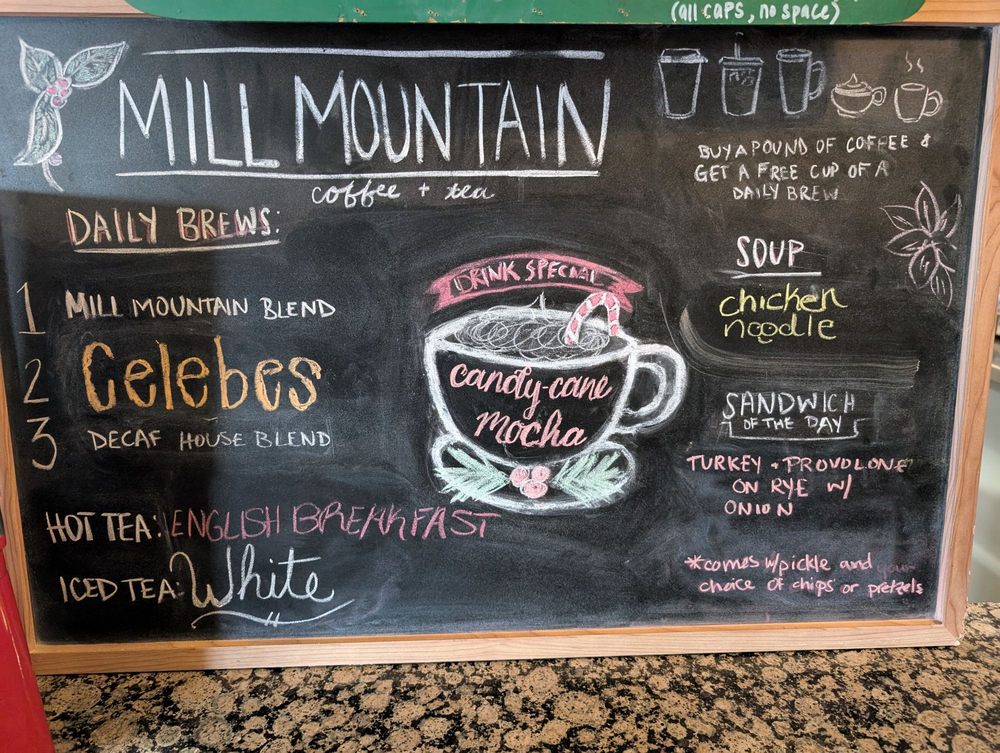 (all caps, no space)
MILL MOUNTAIN
coffee + tea
DAILY BREWS:
1 MILL MOUNTAIN BLEND
2 Celebes
3 DECAF HOUSE BLEND
HOT TEA: ENGLISH BREAKFAST
ICED TEA: White
DRINK SPECIAL
candy-cane
mocha
BUY A POUND OF COFFEE &
GET A FREE CUP OF A
DAILY BREW
SOUP
chicken
noodle
SANDWICH
OF THE DAY
TURKEY + PROVOLONE
ON RYE W/
ONION
*comes w/pickle and your
choice of chips or pretzels